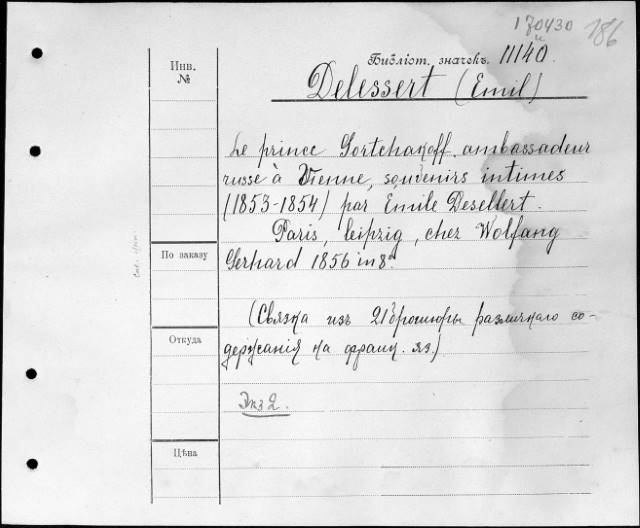 170430
186
Инв.
№
Библіот. значекъ. 11140
Delessert (Emil)
Le prince Gortchakoff ambassadeur
russe à Vienne, souvenirs intimes
(1853-1854) par Emile Desellert.
Paris, Leipzig, chez Wolfang
По заказу
Gerhard 1856 in 8º
(Связка изъ 21 брошюры различнаго со-
Откуда
держанія на франц. яз.)
Экз 2.
Цѣна